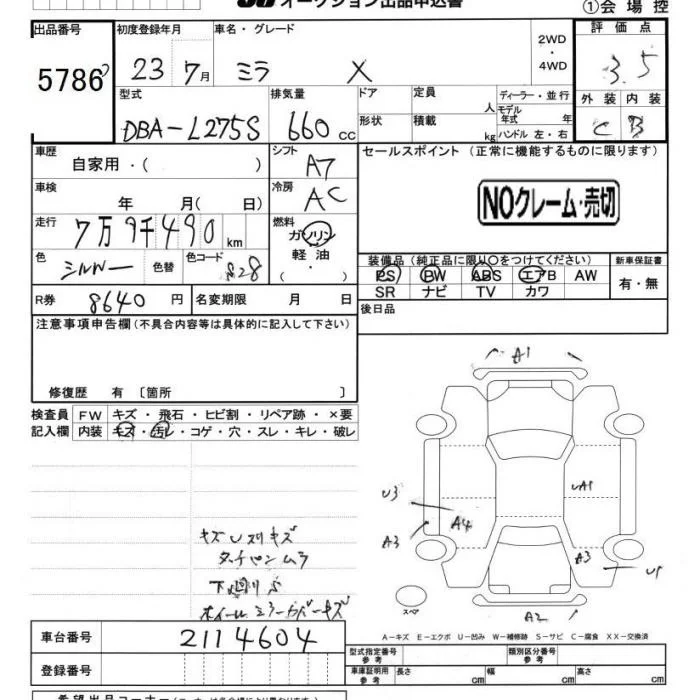 オークション出品申込書
①会場控
出品番号 初度登録年月 車名・グレード 2WD・4WD 評価点
5786 23年7月 ミラ X 3.5
型式 排気量 ドア 定員 人 ディーラー・並行 外装 内装
DBA-L275S 660cc 形状 積載 kg モデル年式 年 ハンドル 左・右 C B
車歴 自家用・( ) シフト A7 セールスポイント(正常に機能するものに限ります)
車検 年 月( 日) 冷房 AC NOクレーム・売切
走行 7万9千490km 燃料 ガソリン 軽油・( )
色 シルバー 色替 色コード S28 装備品(純正品に限り○をつけてください) 新車保証書
PS PW ABS エアB AW 有・無
SR ナビ TV カワ
R券 8640円 名変期限 月 日 後日品
注意事項申告欄(不具合内容等は具体的に記入して下さい)
修復歴 有〔箇所 〕
検査員記入欄 FW キズ・飛石・ヒビ割・リペア跡・×要
内装 キズ・汚レ・コゲ・穴・スレ・キレ・破レ
A1
U3
UA1
A4
A3
A3
U1
キズUスリキズ
タッチペンムラ
下廻りS
ホイールミラーカバーキズ
スペア
A2
車台番号 2114604
A-キズ E-エクボ U-凹み W-補修跡 S-サビ C-腐食 XX-交換済
登録番号 型式指定番号 参考 類別区分番号 参考
車庫証明用 参考 長さ cm 幅 cm 高さ cm
希望出品コーナー